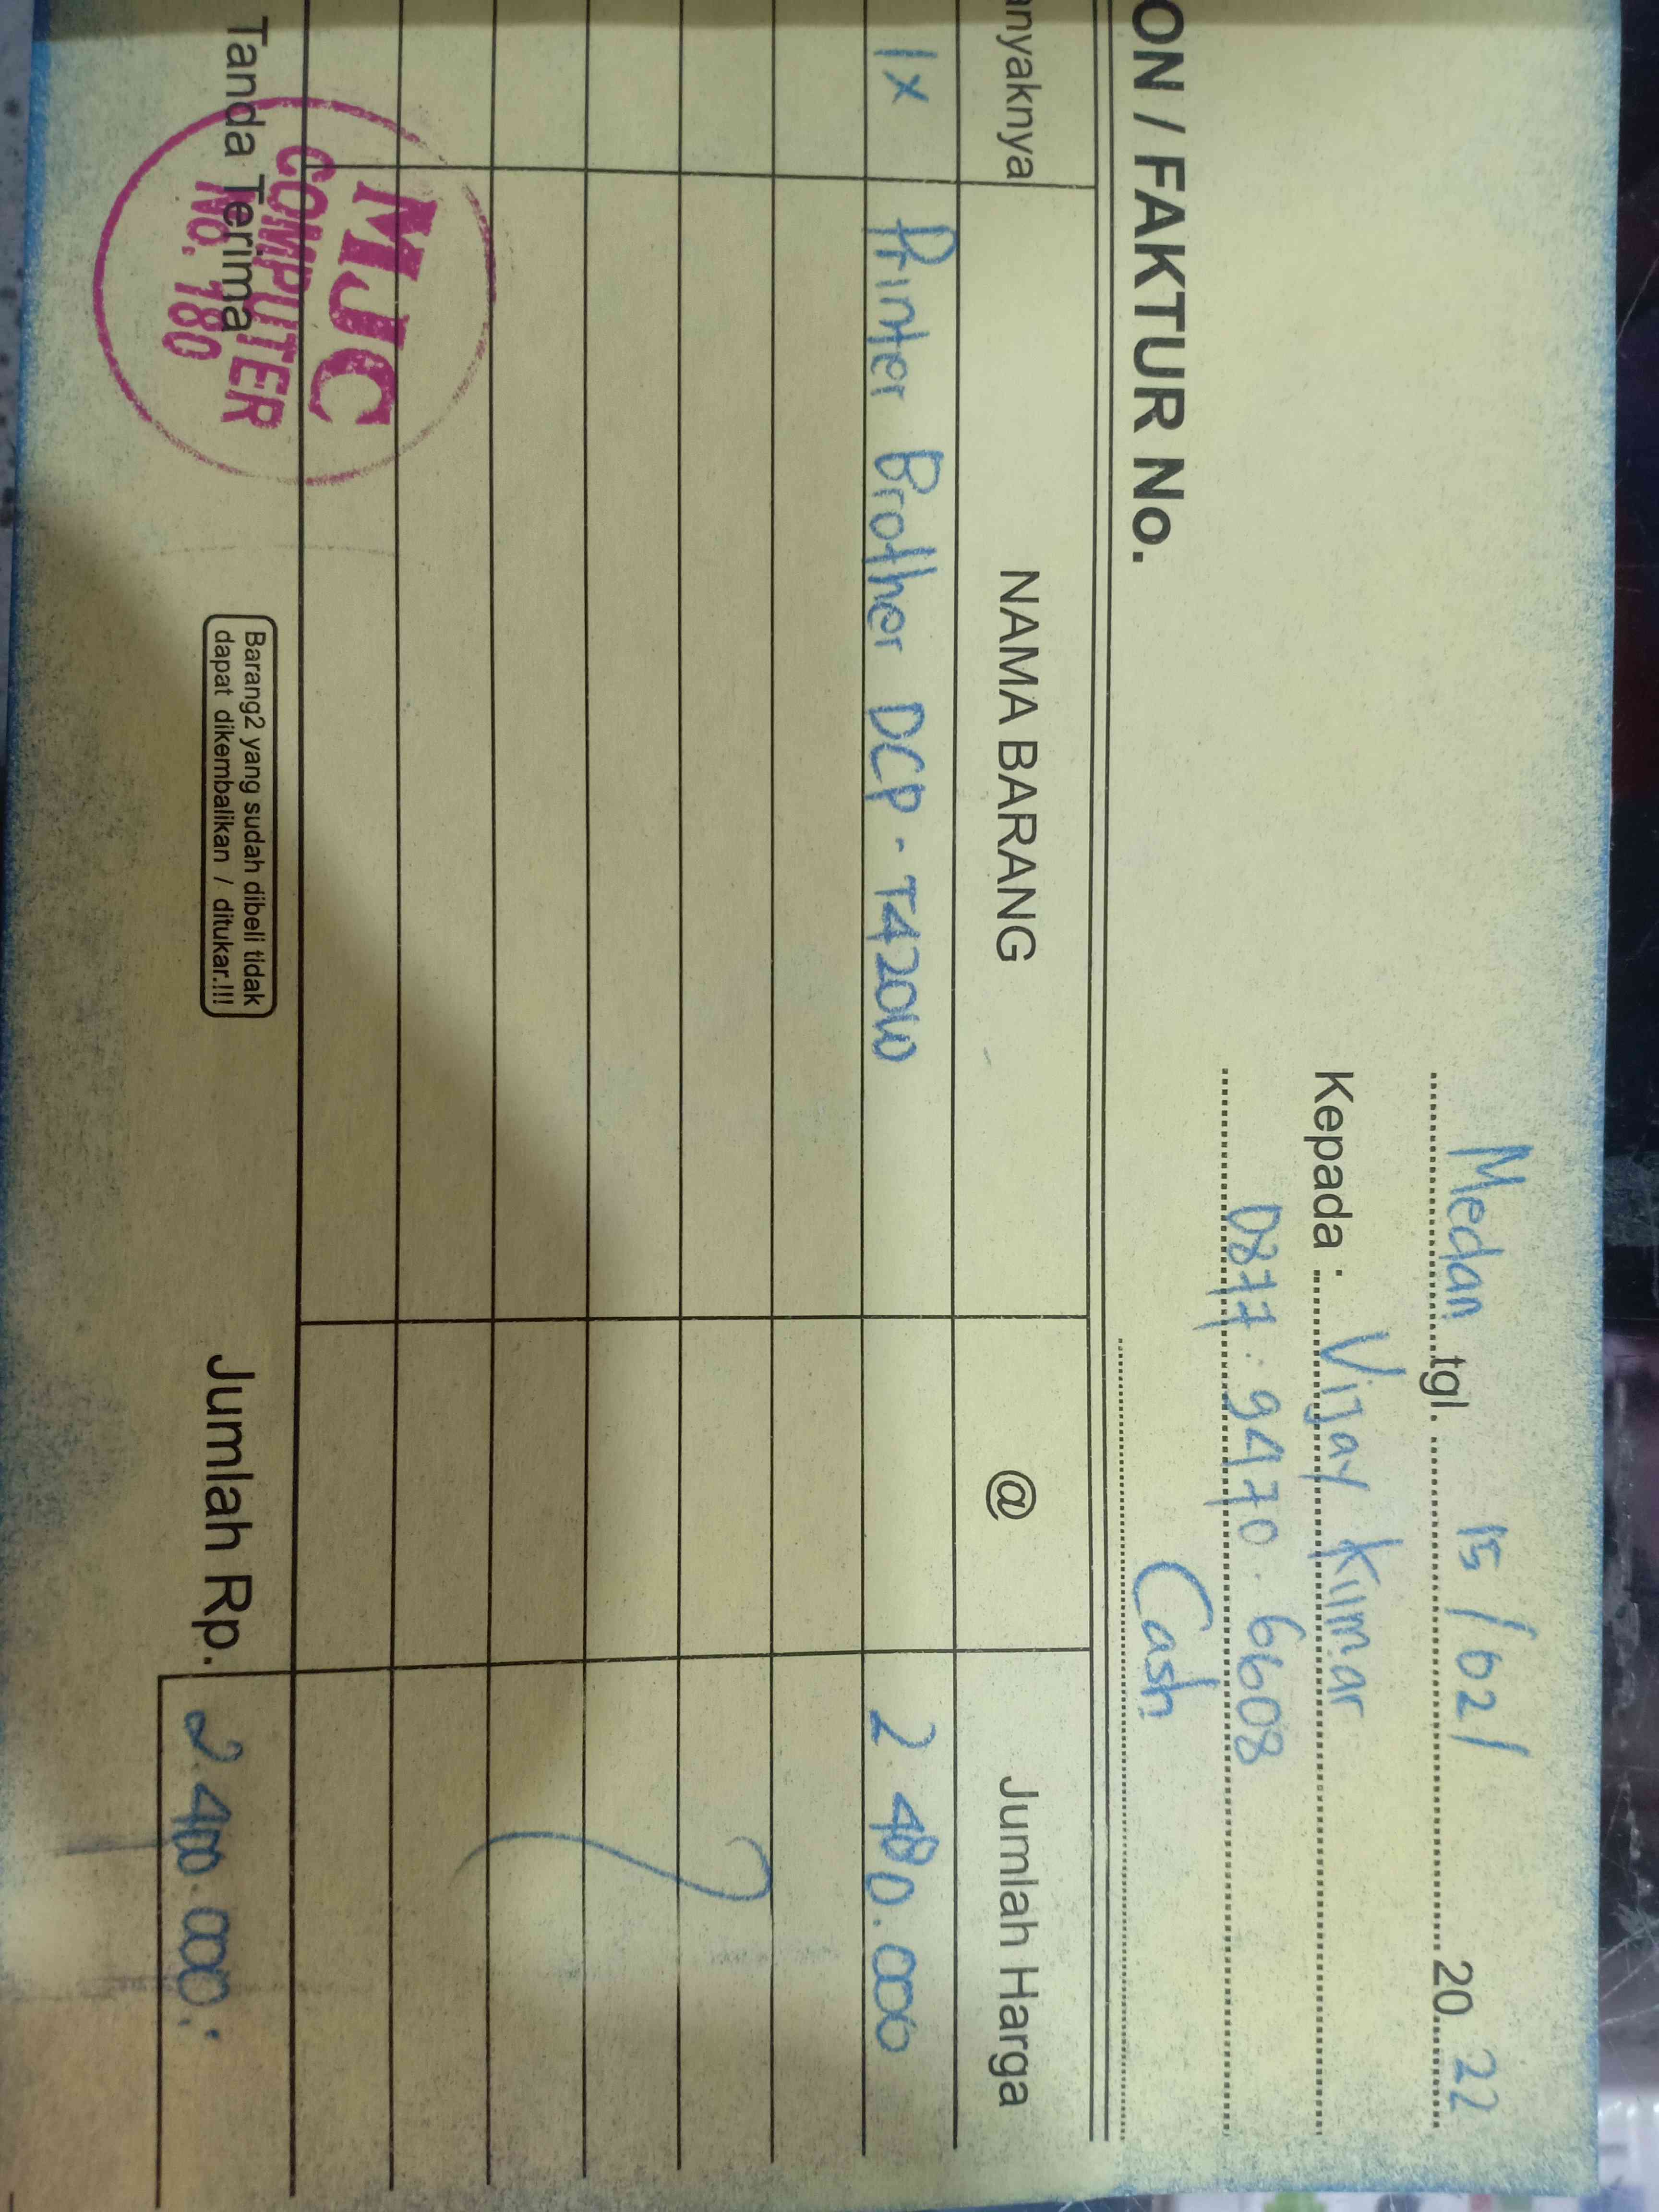 Medan tgl. 15/02/ 2022
Kepada : Vijay Kumar
0877.9470.6608
ON / FAKTUR No.
Cash
anyaknya NAMA BARANG @ Jumlah Harga
1x Printer Brother DCP-T420W 2.480.000
Tanda Terima
MJC
COMPUTER
No. 780
Barang2 yang sudah dibeli tidak
dapat dikembalikan / ditukar.!!!
Jumlah Rp.